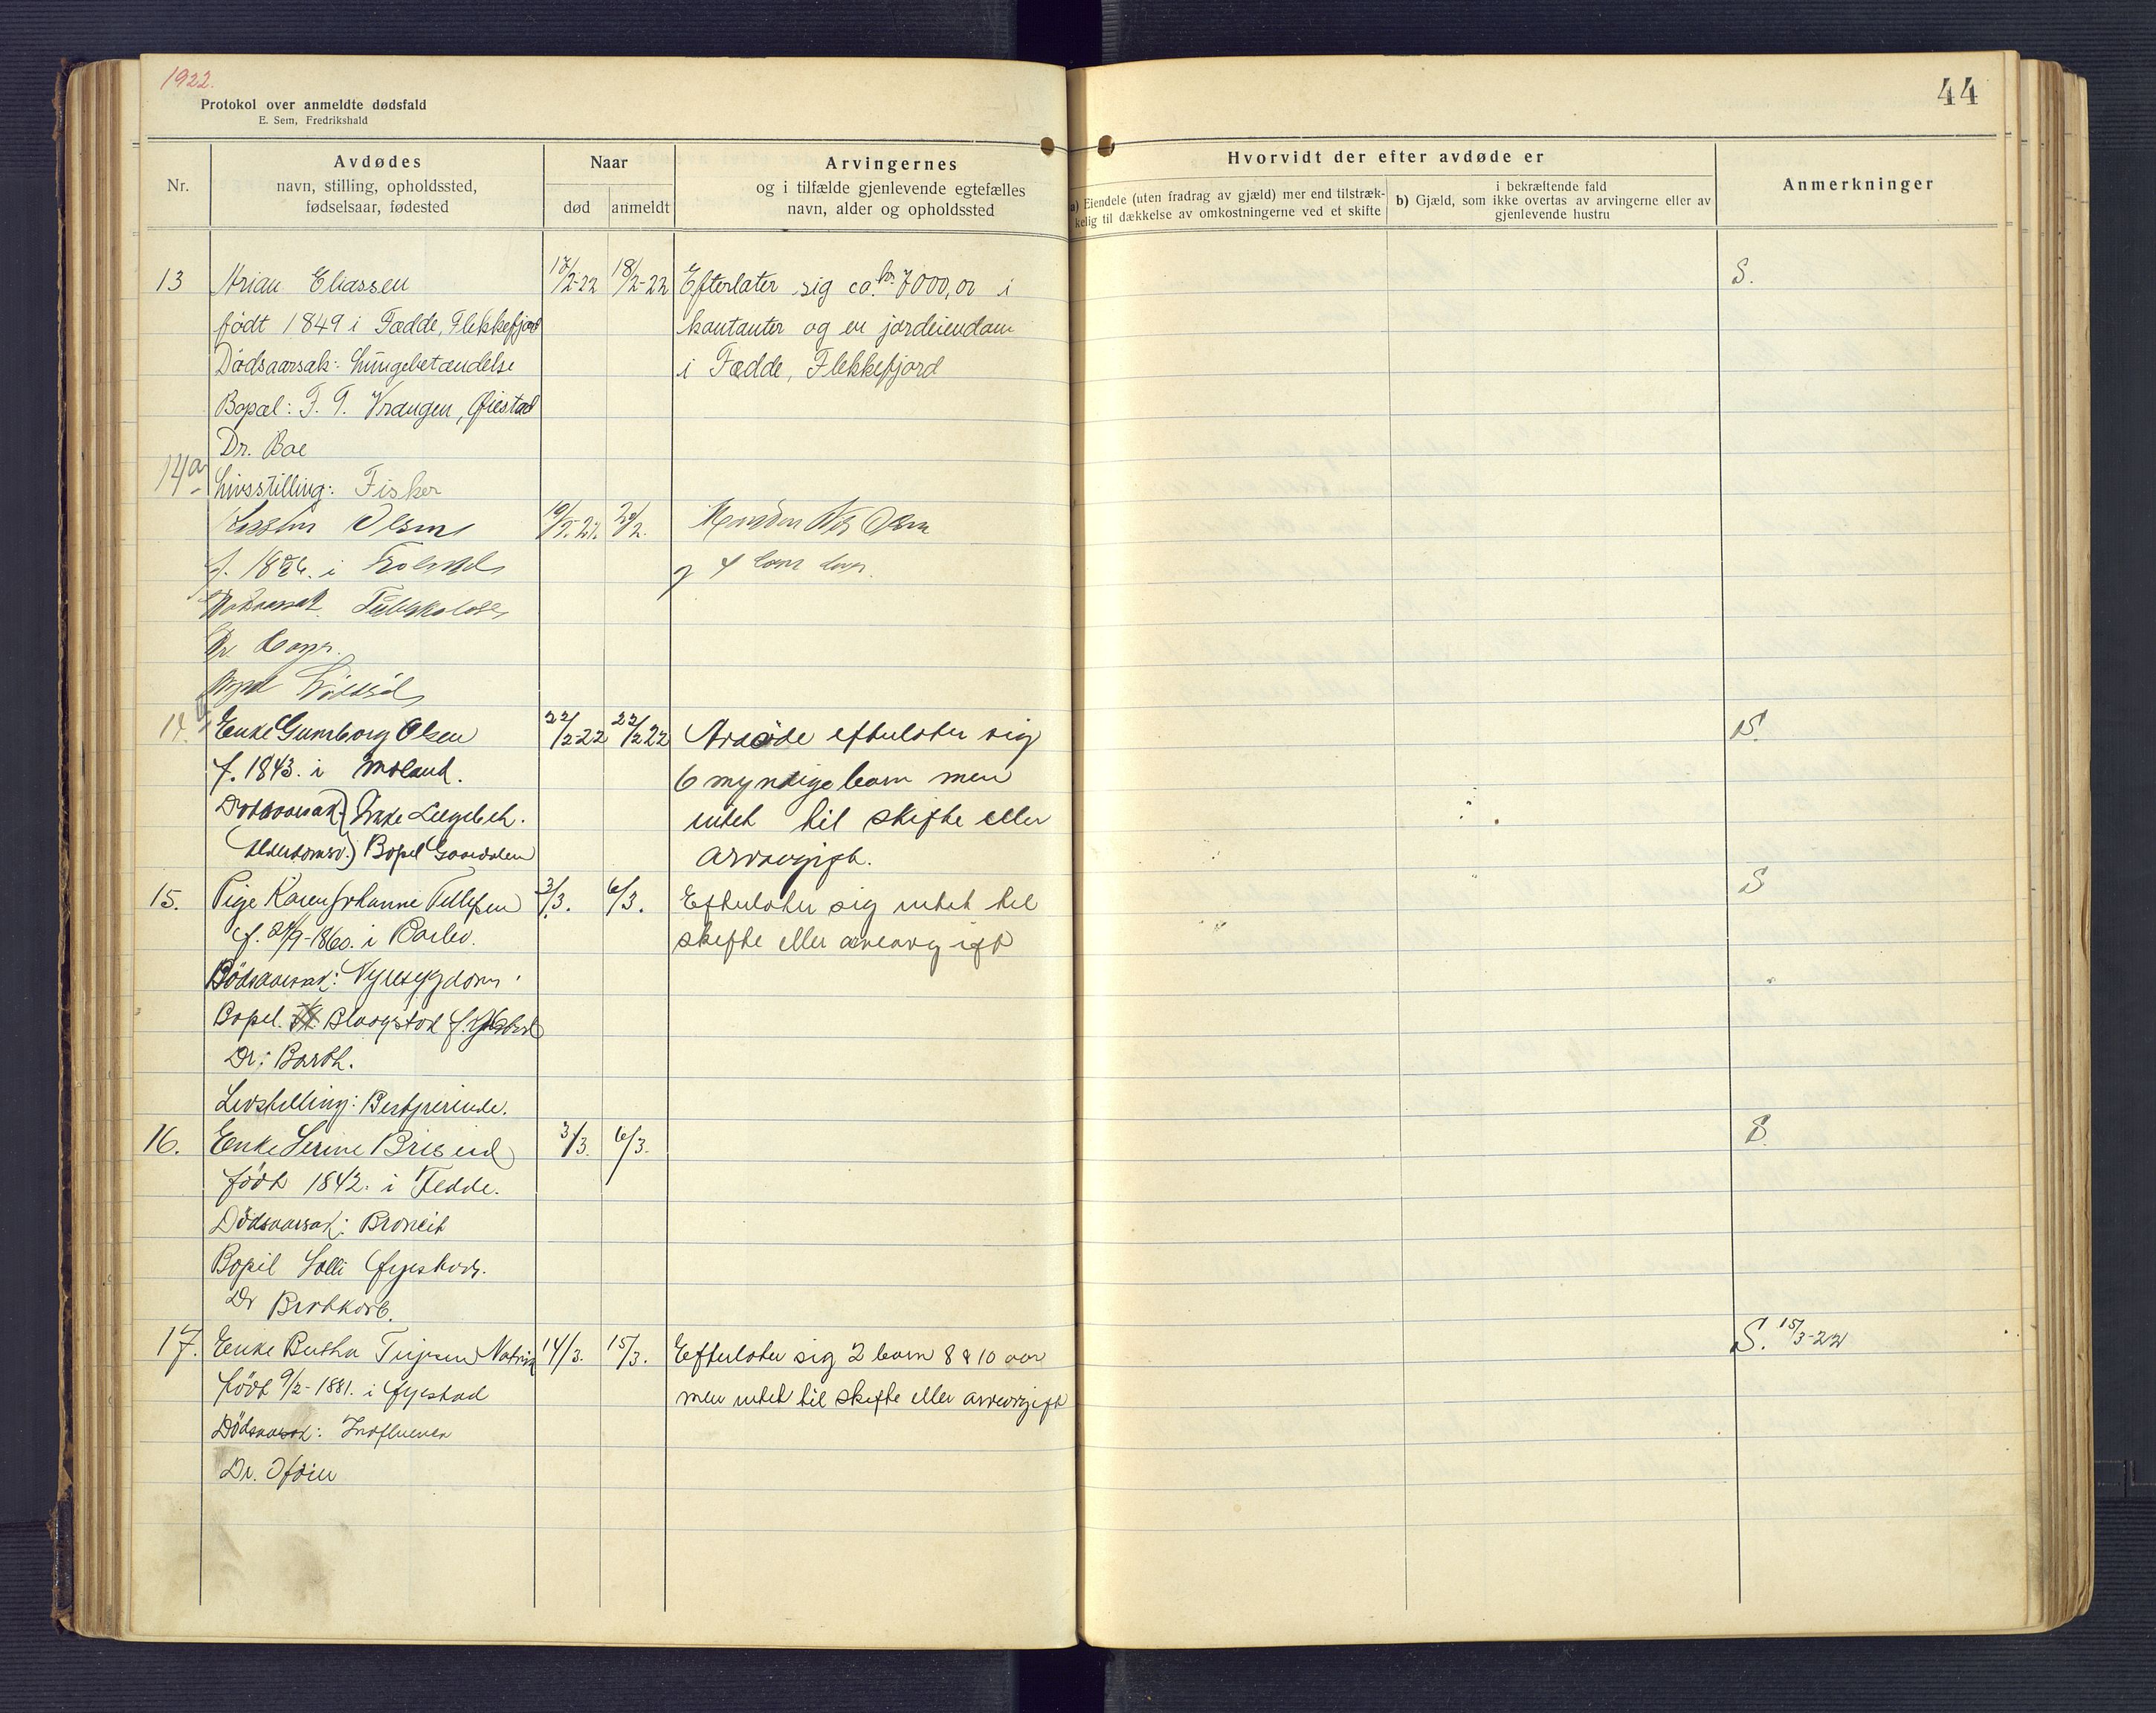 1922.
Protokol over anmeldte dødsfald
E. Sem, Fredrikshald
44
Nr.
Avdødes
navn, stilling, opholdssted,
fødselsaar, fødested
Naar
død
anmeldt
Arvingernes
og i tilfælde gjenlevende egtefælles
navn, alder og opholdssted
Hvorvidt der efter avdøde er
a) Eiendele (uten fradrag av gjæld) mer end tilstræk-
kelig til dækkelse av omkostningerne ved et skifte
i bekræftende fald
b) Gjæld, som ikke overtas av arvingerne eller av
gjenlevende hustru
Anmerkninger
13 Arian Eliassen 17/2-22 18/2-22 Efterlater sig ca. kr. 7000,00 i S.
født 1849 i Fædde, Flekkefjord kontanter og en jordeiendom
Dødsaarsak: Lungebetændelse i Fædde, Flekkefjord
Bopæl: F. G. Vrangen, Øiestad
Dr. Boe
14a Livsstilling: Fisker
Olsen Manden Olsen
f. i og 4 barn
Dødsaarsak Tuberkulose
Dr.
Bopæl
14 Enke Gunborg Olsen 22/2-22 22/2 22 Avdøde efterlater sig S.
f. 1843. i Moland. 6 myndige barn men
Dødsaarsak intet til skifte eller
Bopel arveavgift.
15. Pige Karen Johanne Tellefsen 3/3. 6/3. Efterlater sig intet til S
f. 24/9-1860. i Barbo. skifte eller arveavgift
Dødsaarsak: Nyresygdom.
Bopel. Blaagstad f. Øiestad
Dr: Barth.
Livstilling: Bestyrerinde.
16. Enke Serine Briseid 3/3. 6/3. S.
født 1842. i Fedde.
Dødsaarsak: Bronkit
Bopel Lølli Øyestad.
Dr Brotkorb.
17. Enke Bertha Terjesen 14/3. 15/3. Efterlater sig 2 barn 8 & 10 aar S. 15/3-22
født 9/2-1881. i Øyestad men intet til skifte eller arveavgift
Dødsaarsak: Influensa
Dr.